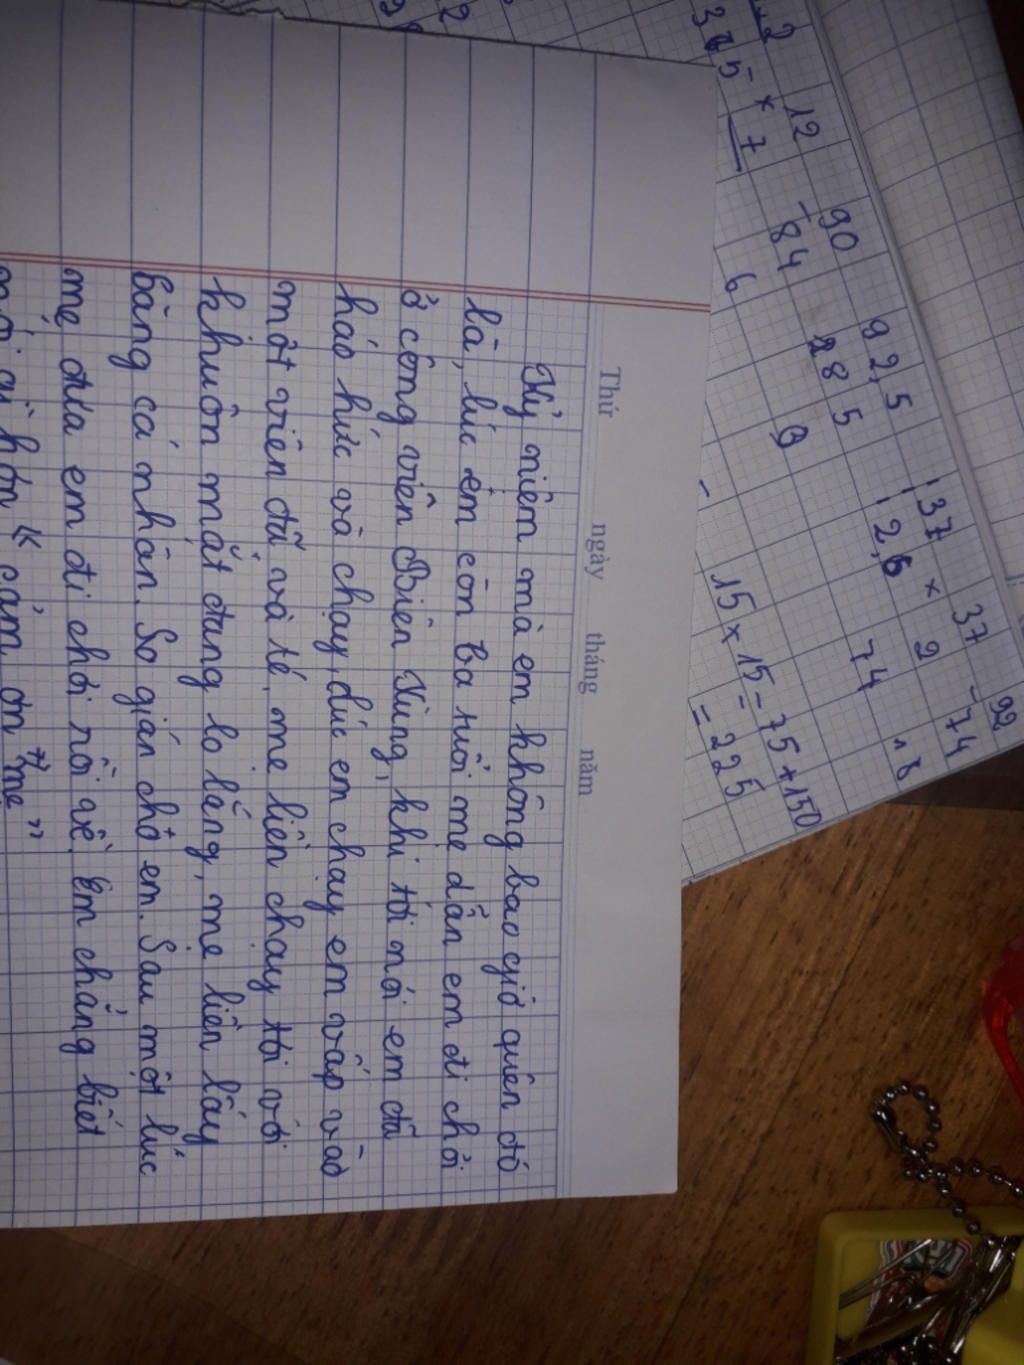 Thứ ngày tháng năm
Kỷ niệm mà em không bao giờ quên đó
là, lúc em còn ba tuổi mẹ dẫn em đi chơi
ở công viên Biên Hùng, khi tới nơi em đã
háo hức và chạy, lúc em chạy em vấp vào
một viên đã và té, mẹ liền chạy tới với
khuôn mặt đang lo lắng, mẹ liền lấy
băng cá nhân. So gián chở em. Sau một lúc
mẹ đưa em đi chơi rồi về. Em chẳng biết
nói gì hơn " cảm ơn mẹ "
12
90
92,5
137
37
92
345 × 7
- 84
185
12,5
× 2
- 74
6
9
74
18
15 × 15 - 75 + 150
= 225